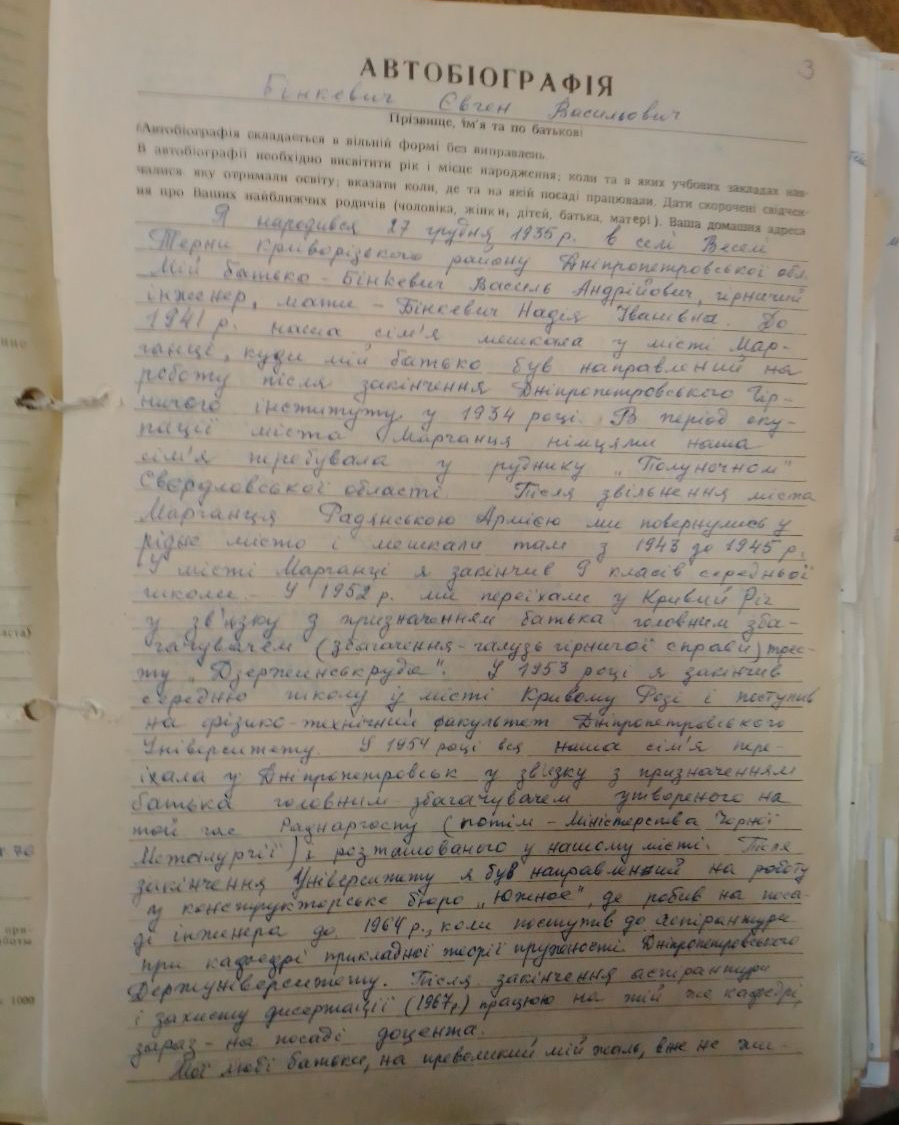 3
АВТОБІОГРАФІЯ
Бінкевич Євген Васильович
Прізвище, ім'я та по батькові
(Автобіографія складається в вільній формі без виправлень.
В автобіографії необхідно висвітити рік і місце народження; коли та в яких учбових закладах нав-
чалися яку отримали освіту; вказати коли, де та на якій посаді працювали. Дати скорочені свідчен-
ня про Ваших найближчих родичів (чоловіка, жінки, дітей, батька, матері). Ваша домашня адреса
Я народився 27 грудня 1935 р. в селі Веселі
Терни Криворізского району Дніпропетровської обл.
Мій батько - Бінкевич Василь Андрійович, гірничий
інженер, мати - Бінкевич Надія Іванівна. До
1941 р. наша сім'я мешкала у місті Мар-
ганці, куди мій батько був направлений на
роботу після закінчення Дніпропетровського Гір-
ничого інституту у 1934 році. В період оку-
пації міста Марганця німцями наша
сім'я перебувала у руднику „Полуночном"
Свердловської області. Після звільнення міста
Марганця Радянською Армією ми повернулись у
рідне місто і мешкали там з 1943 до 1945 р.
У місті Марганці я закінчив 9 класів середньої
школи. - У 1952 р. ми переїхали у Кривий Ріг
у зв'язку з призначенням батька головним зба-
гачувачем (збагачення - галузь гірничої справи) трес-
ту „Дзержинськруда". У 1953 році я закінчив
середню школу у місті Кривому Розі і поступив
на фізико-технічний факультет Дніпропетровського
Університету. У 1954 році вся наша сім'я пере-
їхала у Дніпропетровськ у зв'язку з призначенням
батька головним збагачувачем утвореного на
той час Раднаргоспу (потім - Міністерства Чорної
Металургії), розташованого у нашому місті. Після
закінчення Університету я був направлений на роботу
у конструкторське бюро „Южное", де робив на поса-
ді інженера до 1964 р., коли поступив до аспірантури
при кафедрі прикладної теорії пружності Дніпропетровського
Держуніверситету. Після закінчення аспірантури
і захисту дисертації (1967 р) працюю на тій же кафедрі,
зараз - на посаді доцента.
Мої любі батьки, на превеликий мій жаль, вже не жи-